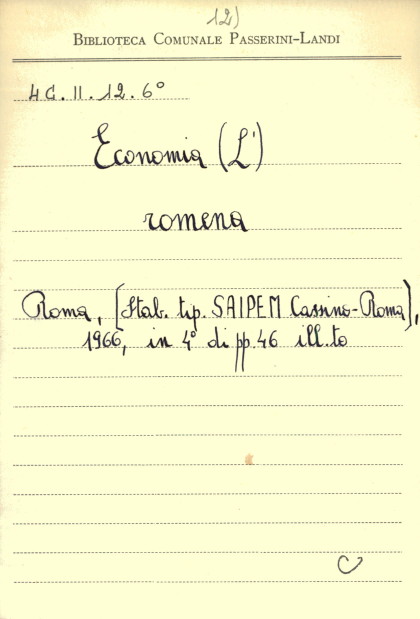 12)
BIBLIOTECA COMUNALE PASSERINI-LANDI
4G.II.12.6°
Economia (L')
romena
Roma, [Stab. tip. SAIPEM Cassino-Roma],
1966, in 4° di pp.46 ill.to
C